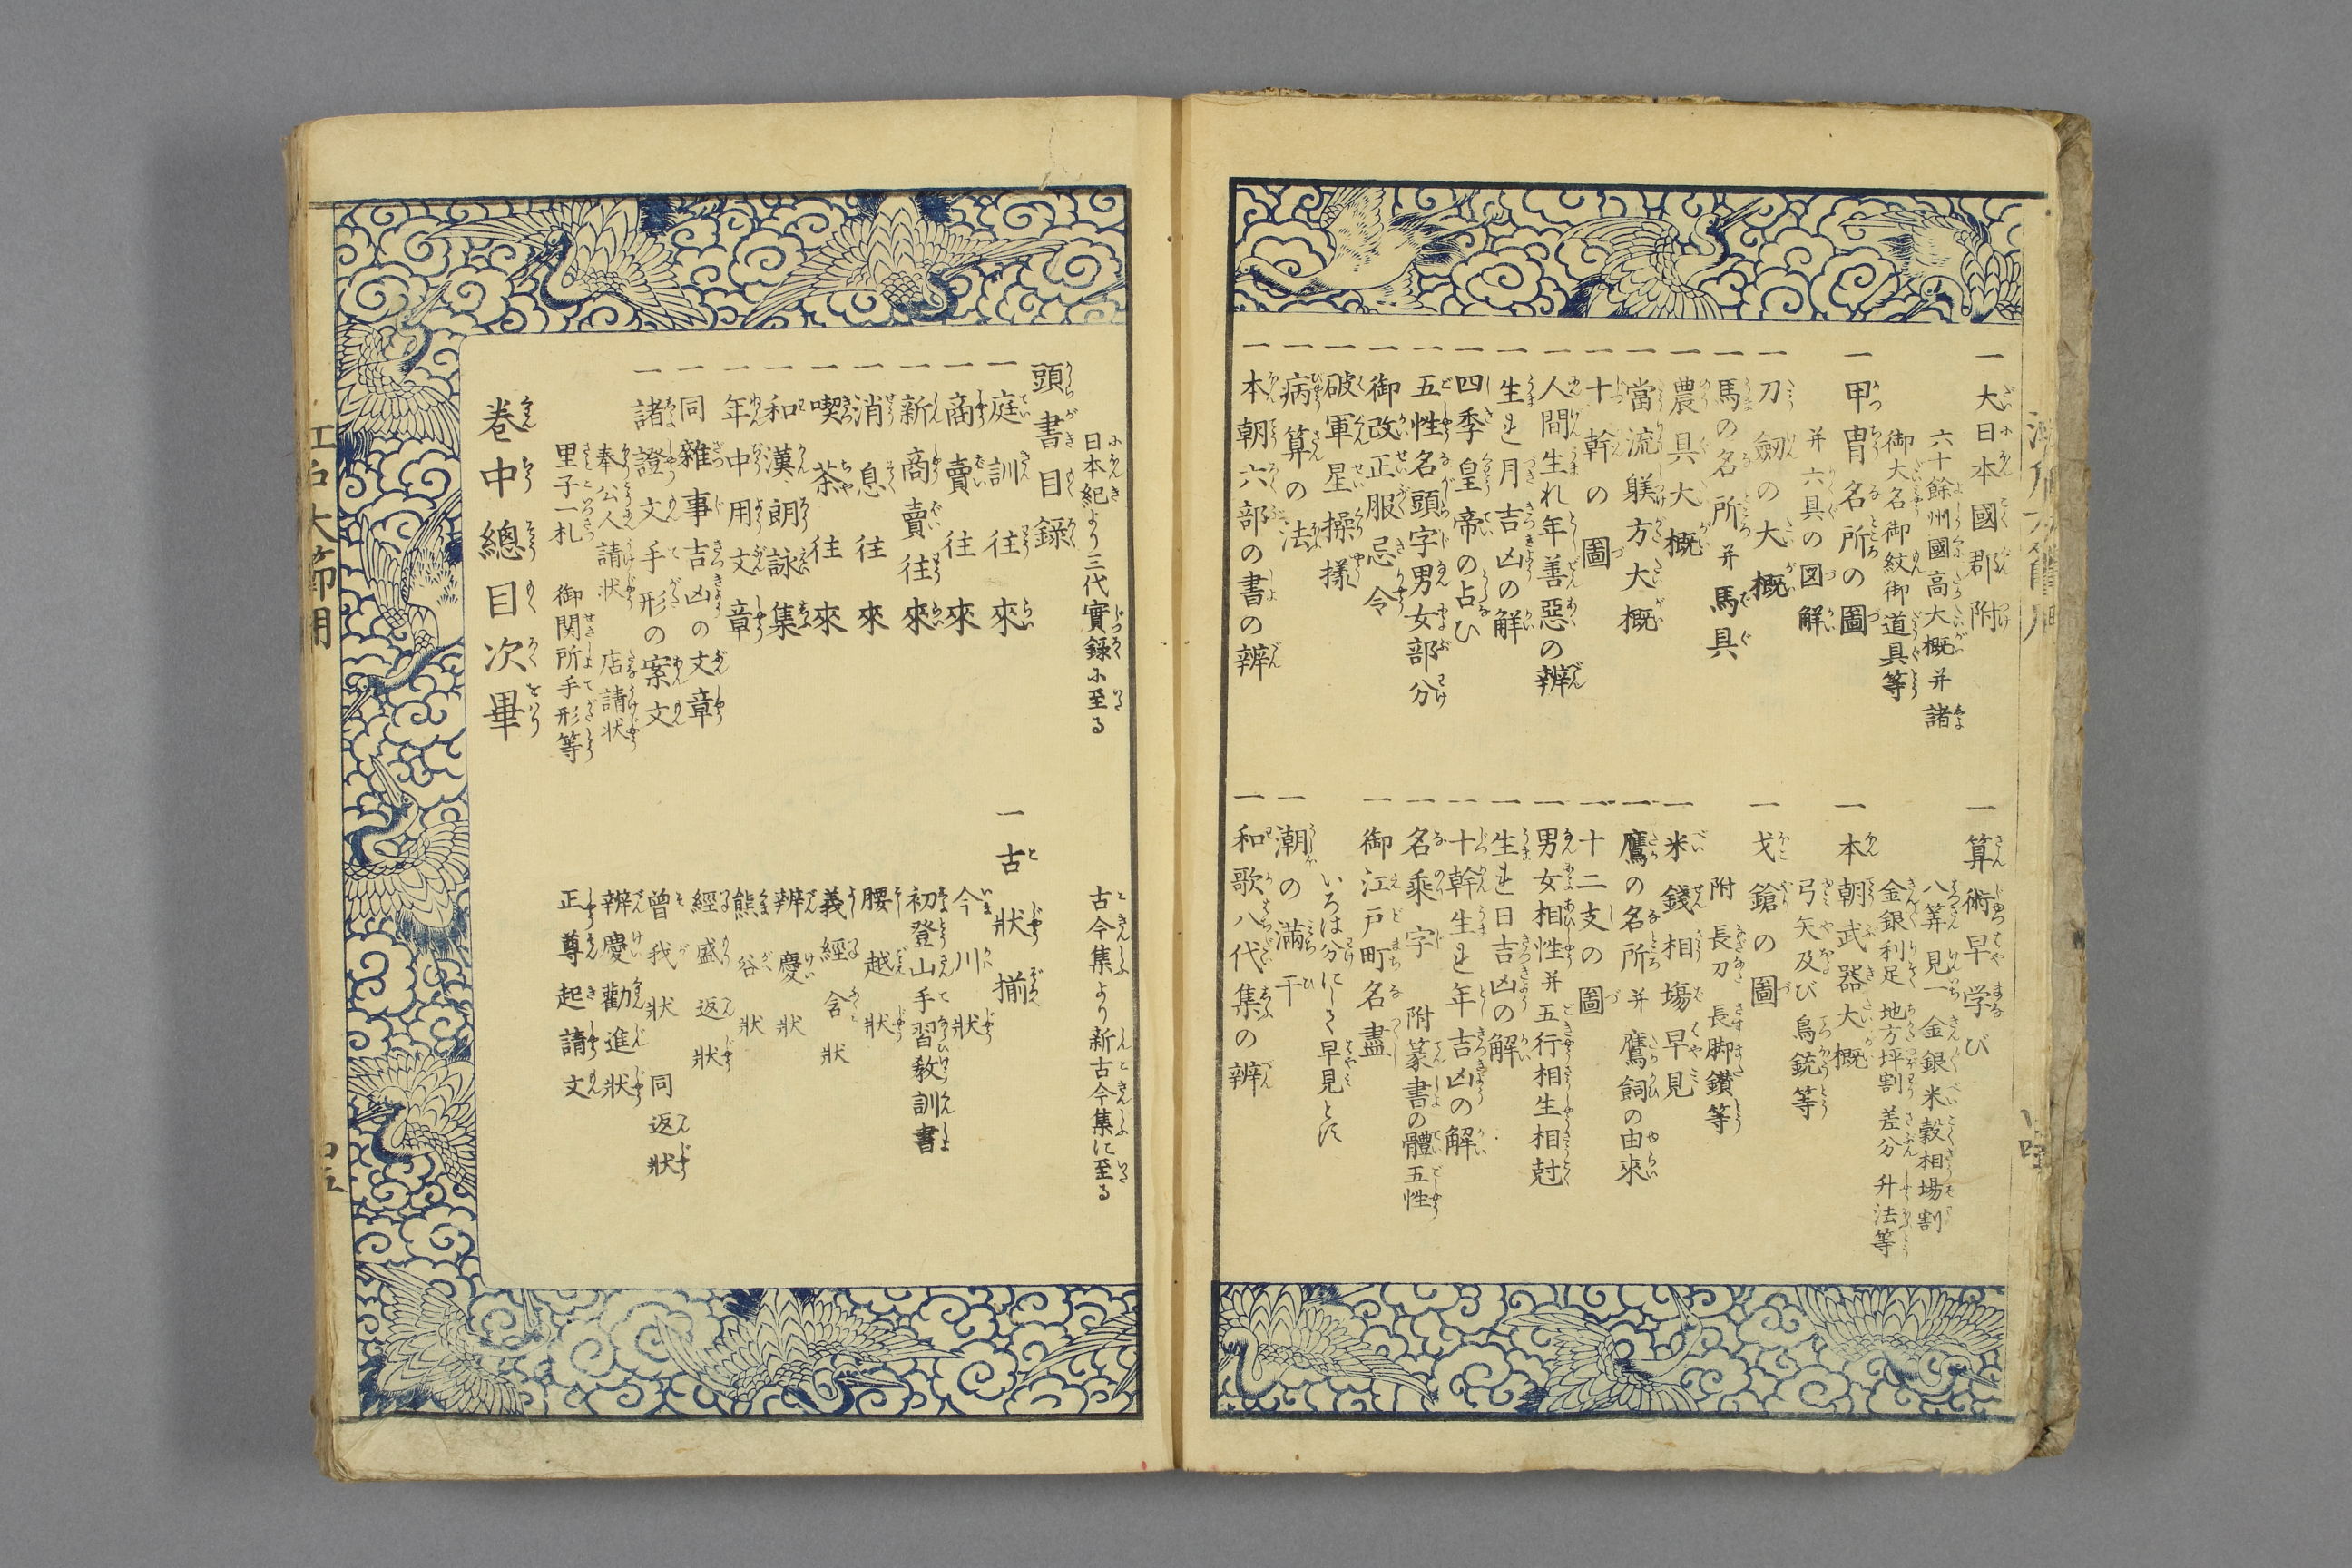 一大日本國郡附
六十餘州國高大概并諸
御大名御紋御道具等
一甲冑名所の圖
并六具の図解
一刀劔の大概
一馬の名所并馬具
一農具大概
一當流躾方大概
一十幹の圖
一人間生れ年善惡の辨
一生れ月吉凶の解
一四季皇帝の占ひ
一五性名頭字男女部分
一御改正服忌令
一破軍星操様
一病算の法
一本朝六部の書の辨
一算術早学び
八算見一 金銀米穀相場割
金銀利足 地方坪割 差分 升法等
一本朝武器大概
弓矢及び鳥銃等
一戈鎗の圖
附 長刀 長脚鑽等
一米錢相塲早見
一鷹の名所并鷹飼の由來
一十二支の圖
一男女相性并五行相生相尅
一生れ日吉凶の解
一十幹生れ年吉凶の解
一名乘字 附篆書の體五性
一御江戸町名盡
いろは分にして早見とす
一潮の滿干
一和歌八代集の辨
日本紀より三代實録に至る
古今集より新古今集に至る
頭書目録
一庭訓往來
一商賣往來
一新商賣往來
一消息往來
一喫茶往來
一和漢朗詠集
一年中用文章
一同雜事吉凶の文章
一諸證文手形の案文
奉公人請状 店請状
里子一札 御関所手形等
一古狀揃
今川狀
初登山手習敎訓書
腰越狀
義經含狀
辨慶狀
熊谷狀
經盛返狀
曽我狀 同返狀
辨慶勸進狀
正尊起請文
卷中總目次畢
江戸大節用